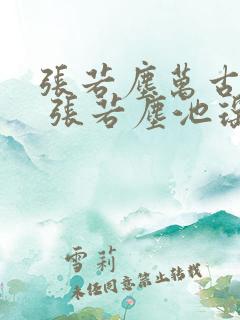 張若塵萬古
張若塵池
雪莉
未经同意禁止转载